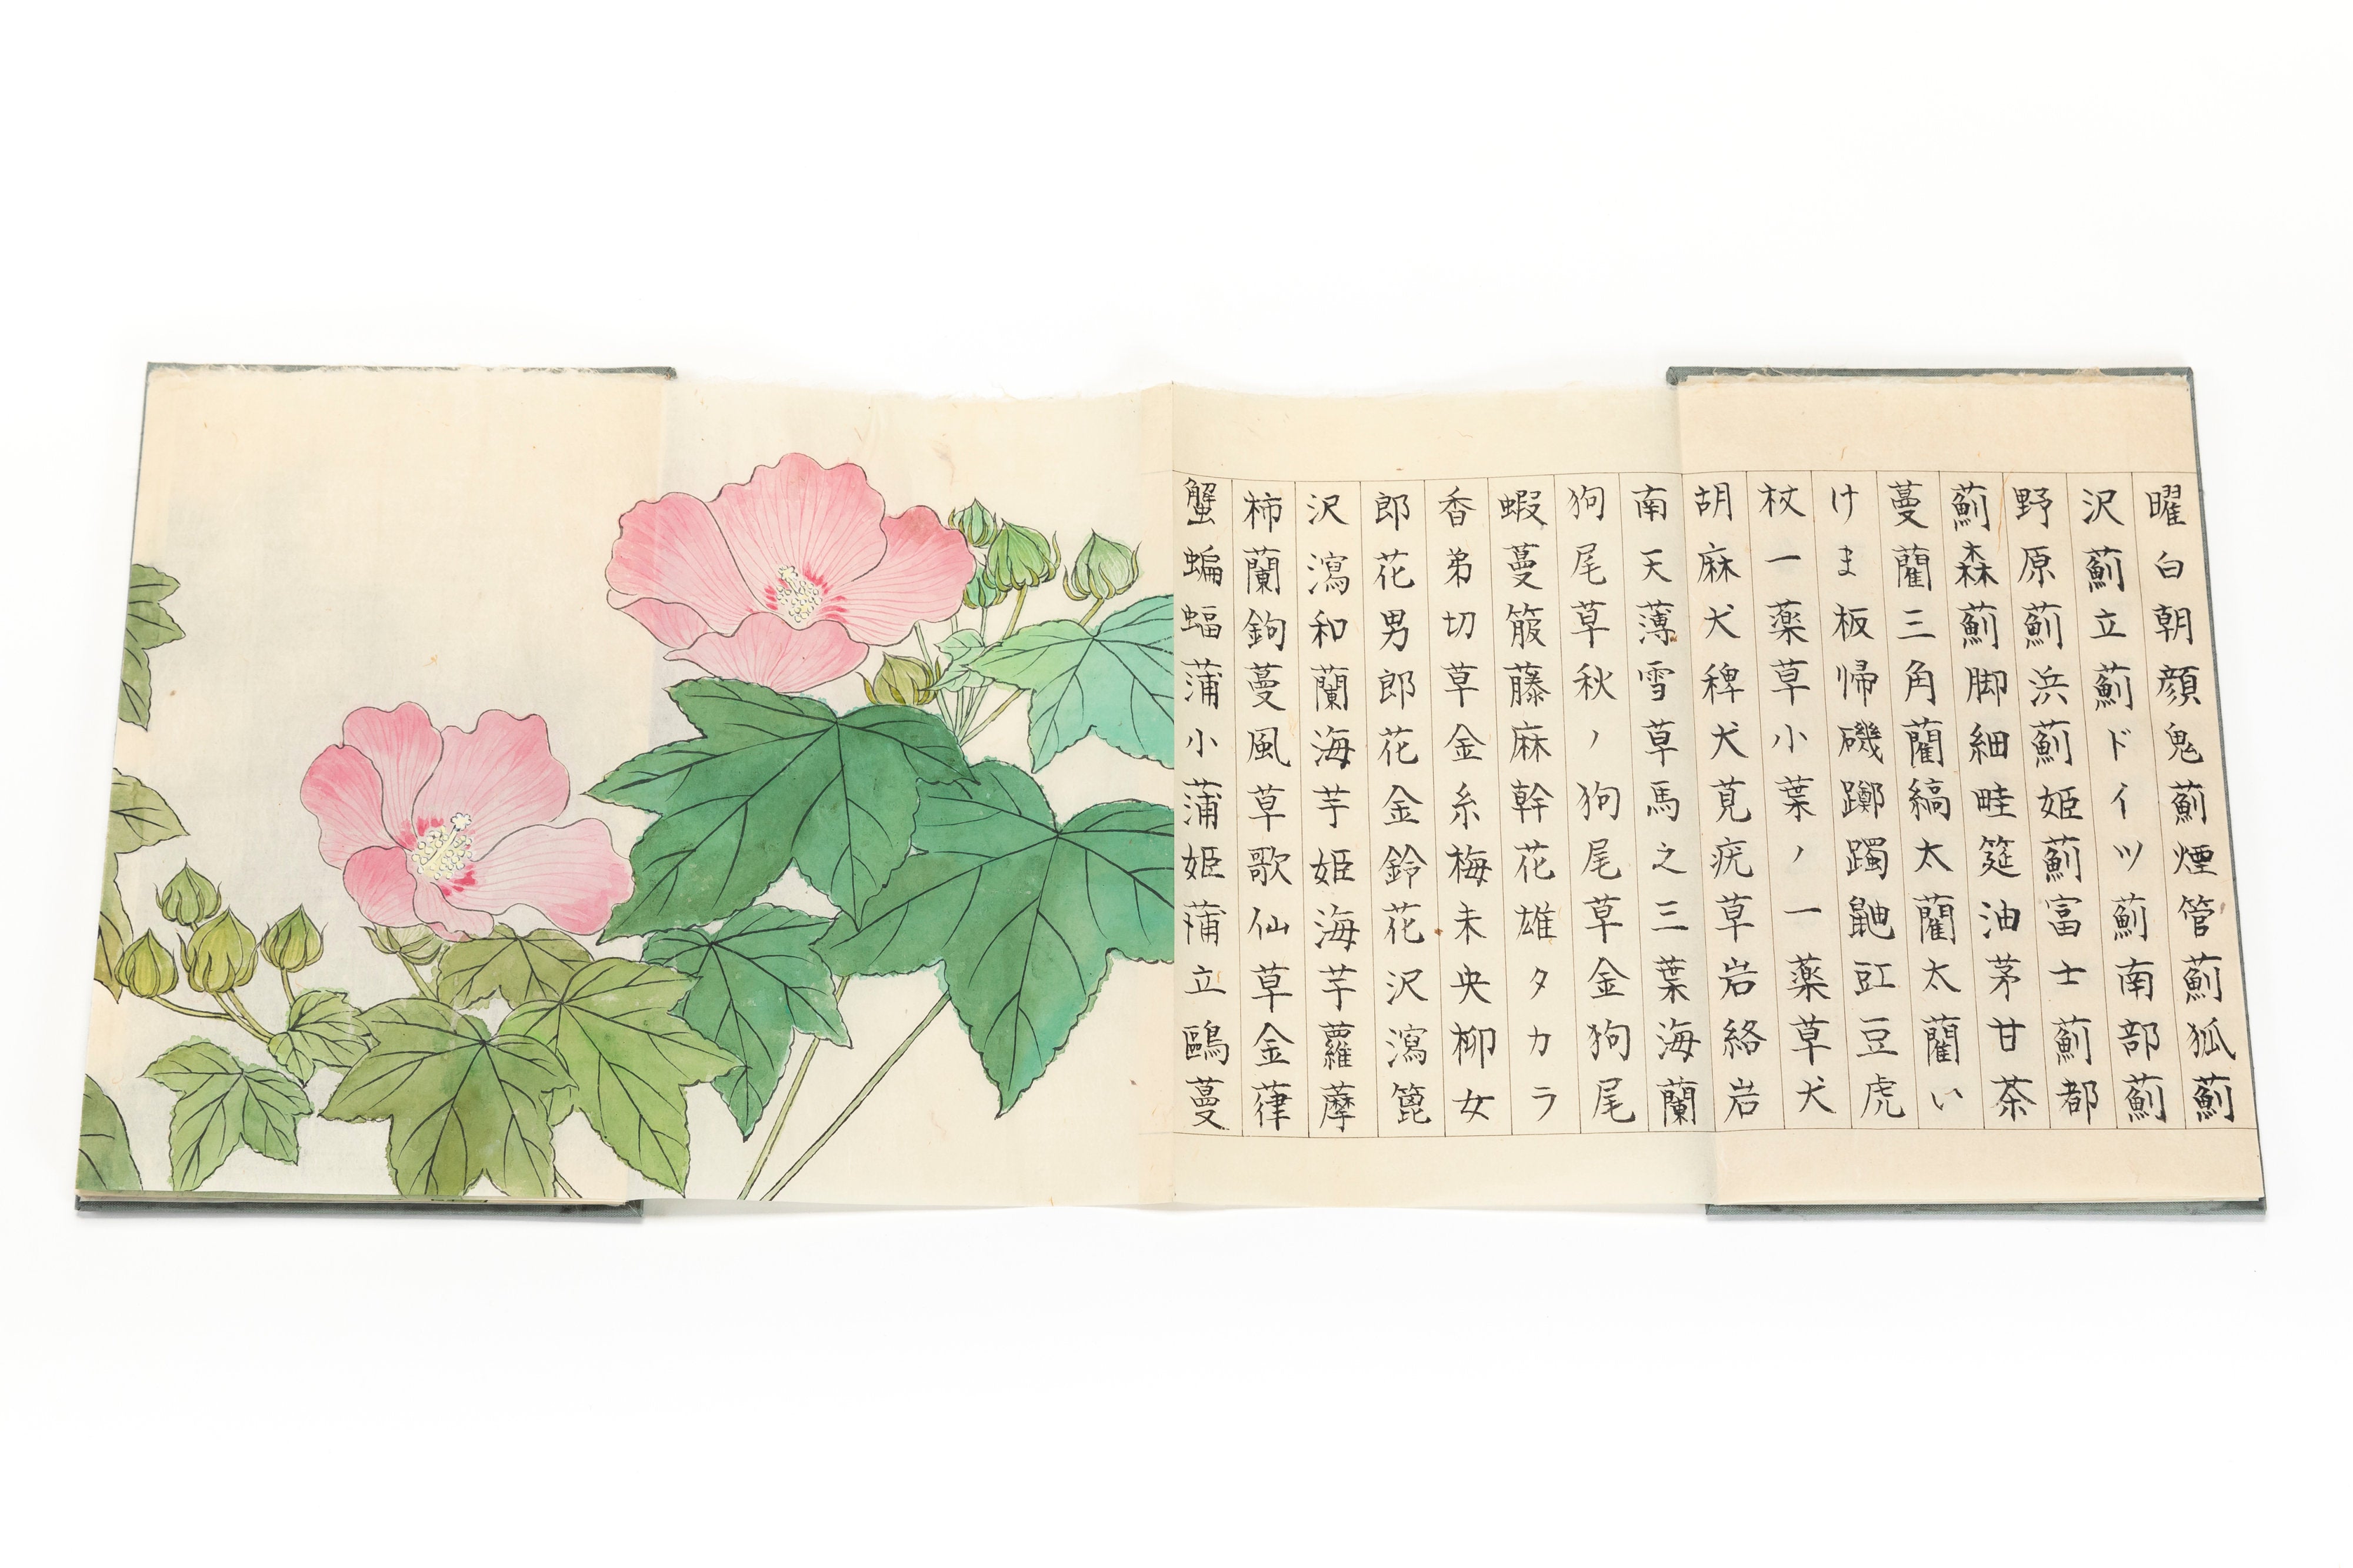 曜白朝顔鬼薊煙管薊狐薊
沢薊立薊ドイツ薊南部薊
野原薊浜薊姫薊富士薊都
薊森薊脚細畦筵油茅甘茶
蔓藺三角藺縞太藺太藺い
けま板帰磯躑躅鼬豇豆虎
杖一薬草小葉ノ一薬草犬
胡麻犬稗犬莧疣草岩絡岩
南天薄雪草馬之三葉海蘭
狗尾草秋ノ狗尾草金狗尾
蝦蔓箙藤麻幹花雄タカラ
香弟切草金糸梅未央柳女
郎花男郎花金鈴花沢瀉箆
沢瀉和蘭海芋姫海芋蘿藦
柿蘭鉤蔓風草歌仙草金葎
蟹蝙蝠蒲小蒲姫蒲立鷗蔓